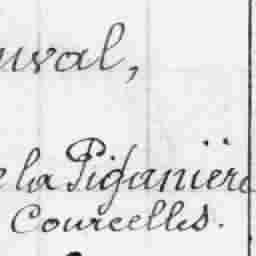 uval,
e la Piganière
Courcelles.